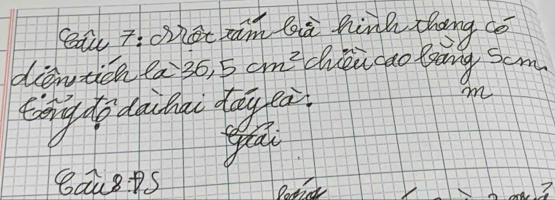 Câu 7: Một tấm bìa hình thang có
diện tích là 36,5 cm² chiều cao bằng 5cm.
tổng độ dài hai đáy là:
m
Giải
Câu 8: